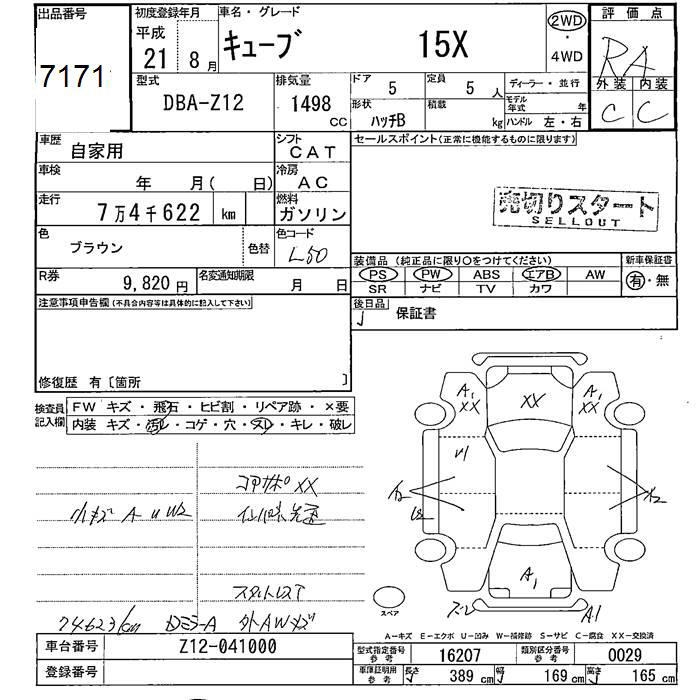 出品番号
7171
初度登録年月
平成
21 8月
車名・グレード
キューブ 15X
2WD
・
4WD
評価点
RA
外装 内装
C C
型式
DBA-Z12
排気量
1498
CC
ドア
5
定員
5 人
ディーラー・並行
形状
ハッチB
積載
kg
モデル年式 年
ハンドル 左・右
車歴
自家用
シフト
CAT
セールスポイント(正常に機能するものに限ります)
車検
年 月( 日)
冷房
AC
走行
7万4千622 km
燃料
ガソリン
売切りスタート
SELLOUT
色
ブラウン
色替
色コード
L50
装備品(純正品に限り○をつけてください)
新車保証書
PS PW ABS エアB AW
SR ナビ TV カワ
有・無
R券
9,820円
名変通知期限
月 日
後日品
保証書
注意事項申告欄(不具合内容等は具体的に記入して下さい)
修復歴 有〔箇所 〕
検査員記入欄
FW キズ・飛石・ヒビ割・リペア跡・×要
内装 キズ・汚レ・コゲ・穴・スレ・キレ・破レ
コアサポXX
小キズ A U W2
74623km
DミラーA
外AWキズ
A1
XX
XX
A1
XX
A2
U2
X2
A1
スレ
A1
スペア
A-キズ E-エクボ U-凹み W-補修跡 S-サビ C-腐食 XX-交換済
車台番号
Z12-041000
型式指定番号
参考
16207
類別区分番号
参考
0029
登録番号
車庫証明用
参考
長さ 389 cm
幅 169 cm
高さ 165 cm